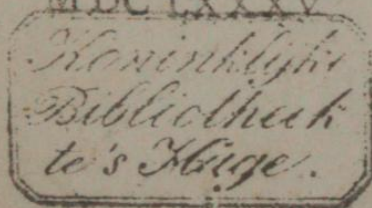 MDCLXXXV
Koninklijke
Bibliotheek
te's Hage.